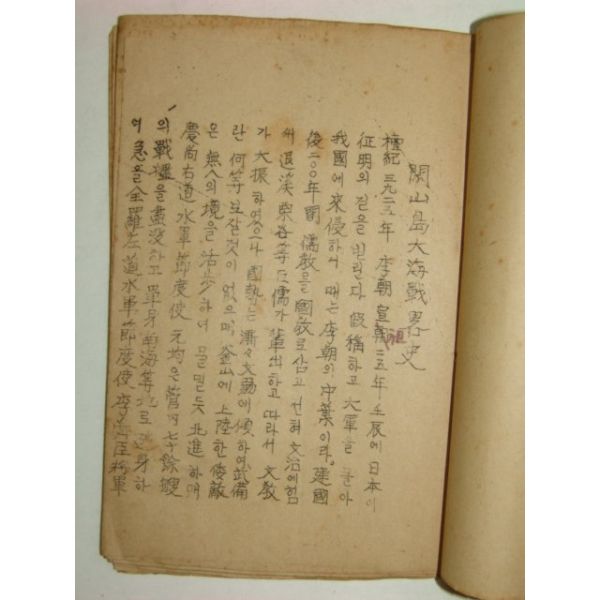 閑山島大海戰畧史
檀紀三九二五年 李朝宣朝二五年壬辰에 日本이
祖
征明의 길을 빌린다 假稱하고 大軍을 몰아
我國에 來侵하니 때는 李朝의 中葉이라. 建國
後二〇〇年間 儒敎을 國敎로 삼고 전혀 文治에 힘
써 退溪 栗谷 等 巨儒가 輩出하고 따라서 文敎
가 大振하였으나 國勢는 漸々 文動에 傾하여 武備
란 何等 보잘것이 없으며, 釜山에 上陸한 倭敵
은 無人의 境을 하여 물밀듯 北進하매
慶尙右道水軍節度使 元均은 營內 七十餘艘
의 戰艦을 盡沒하고 單身 南海等地로 身하
여 急을 全羅左道水軍節度使 李舜臣將軍